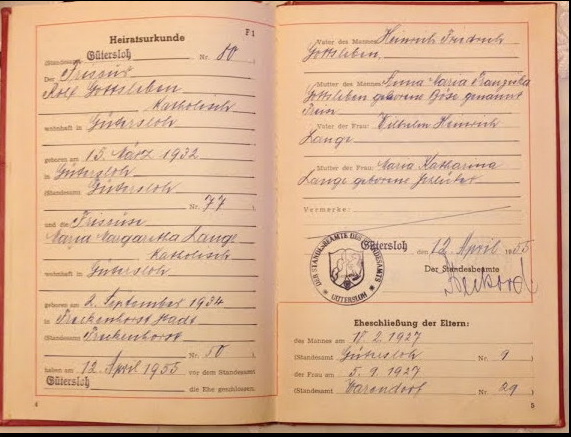 Heiratsurkunde
F 1
(Standesamt Gütersloh Nr. 80)
Der Friseur
Rolf Gottsleben
katholisch
wohnhaft in Gütersloh
geboren am 15. März 1932
in Gütersloh
(Standesamt Gütersloh
Nr. 77)
und die Friseuse
Maria Margaretha Lange
katholisch
wohnhaft in Gütersloh
geboren am 2. September 1934
in Freckenhorst Stadt
(Standesamt Freckenhorst
Nr. 50)
haben am 12. April 1955 vor dem Standesamt
Gütersloh die Ehe geschlossen.
4
Vater des Mannes: Heinrich Friedrich
Gottsleben
Mutter des Mannes: Anna Maria Franziska
Gottsleben geborene Böse genannt
Vater der Frau: Wilhelm Heinrich
Lange
Mutter der Frau: Maria Katharina
Lange geborene
Vermerke:
Gütersloh, den 12. April 1955
Der Standesbeamte
DER STANDESBEAMTE DES STANDESAMTS
GÜTERSLOH
Eheschließung der Eltern:
des Mannes am 18.2.1927
(Standesamt Gütersloh Nr. 9)
der Frau am 5.9.1927
(Standesamt Warendorf Nr. 29)
5